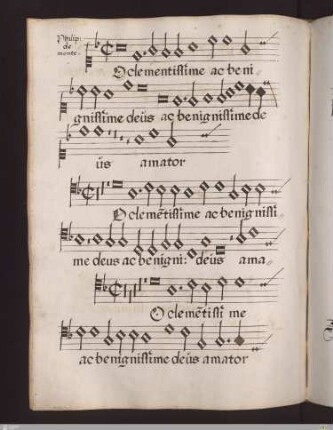 Philip:
de
monte.
O clementissime ac beni
gnissime deus ac benignissime de
us amator
O clemētissime ac benignissi
me deus ac benigni: deus ama
O clemētissi me
ac benignissime deus amator